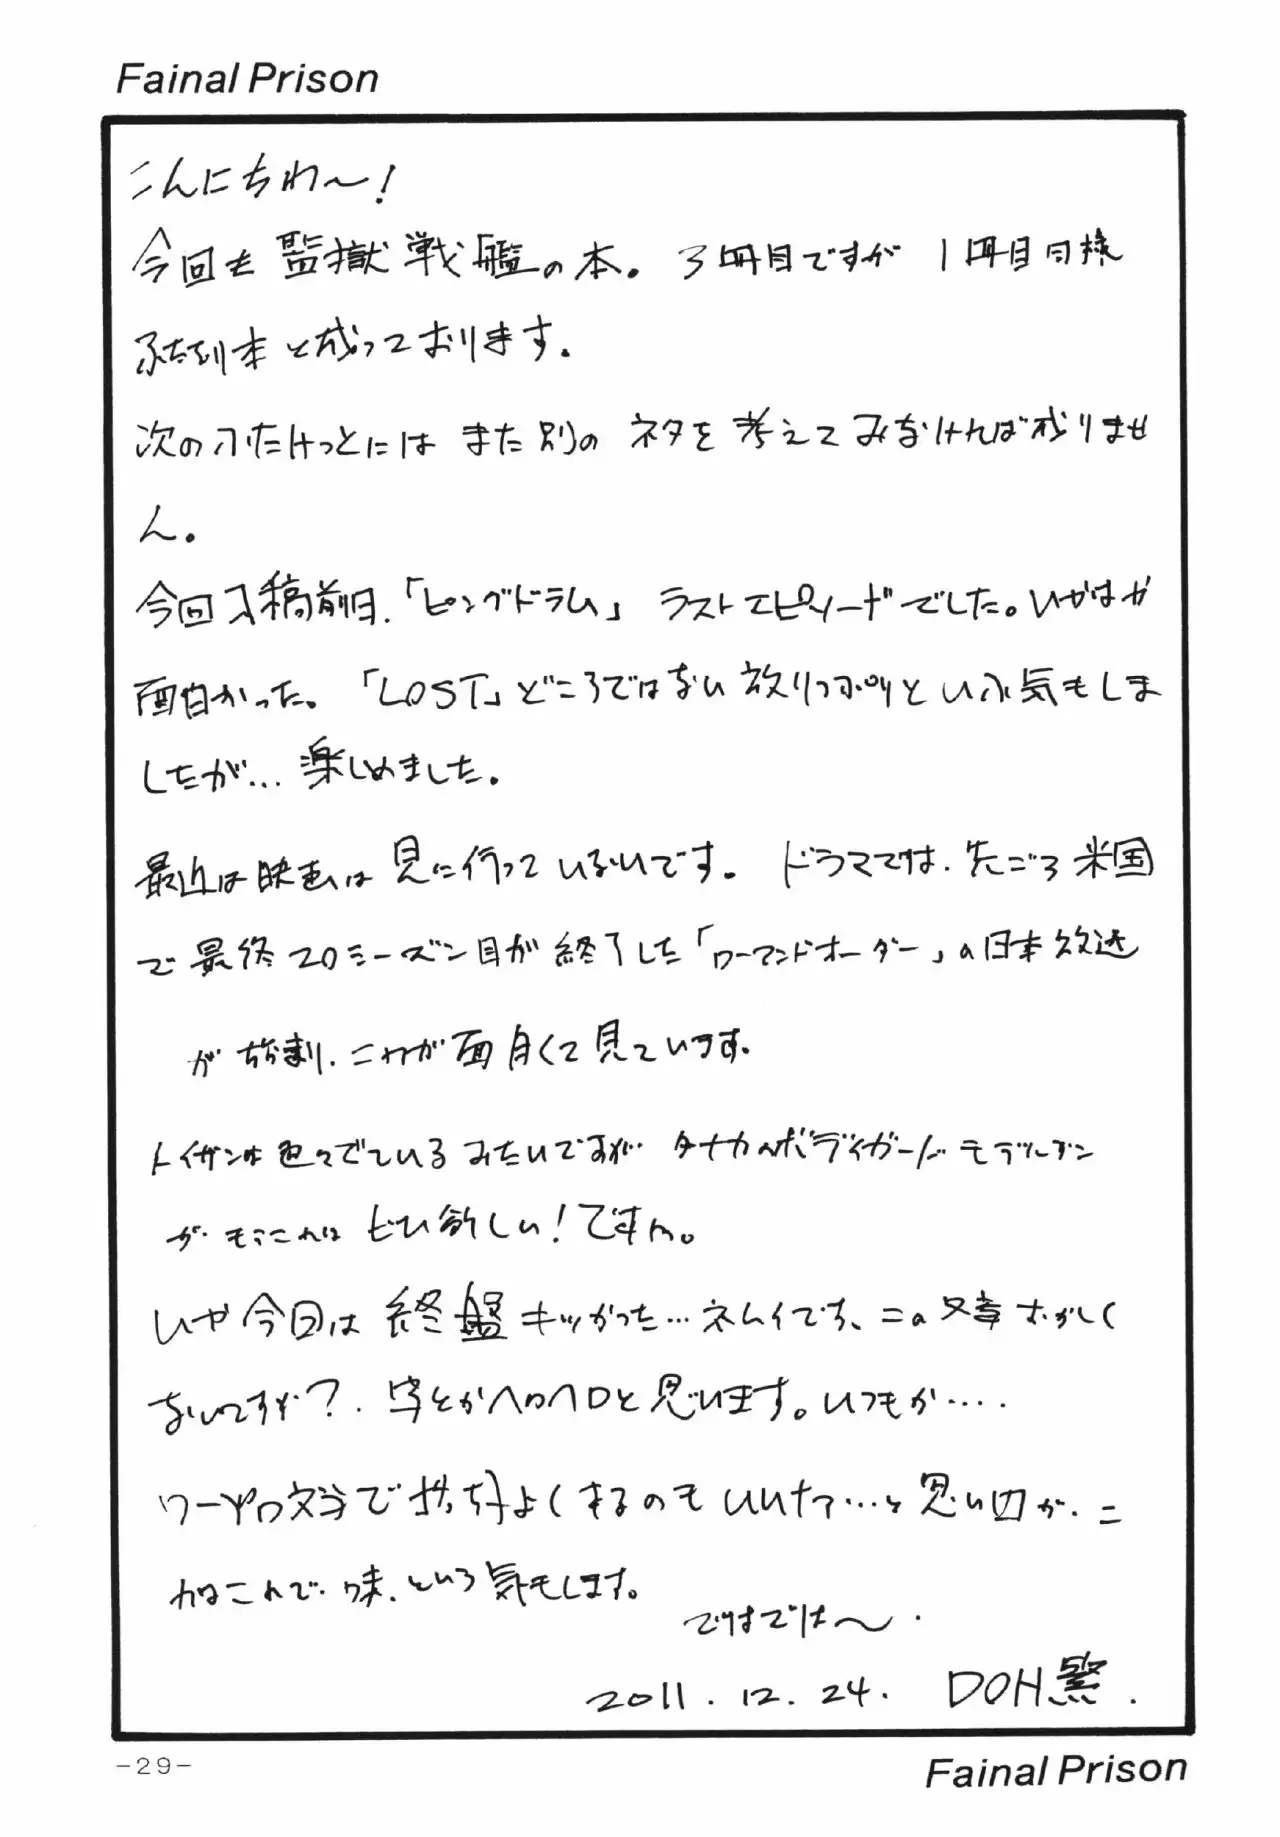 Fainal Prison
こんにちわ～!
今回も監獄戦艦の本。3冊目ですが1冊目同様
ふたなり本と成っております。
次のふたけっとには また別の ネタを考えてみなければ成りませ
ん。
今回入稿前日、「ピングドラム」 ラストエピソードでした。いやはや
面白かった。「LOST」どころではない放りっぷりという気もしま
したが… 楽しめました。
最近は映画は見に行っていないです。 ドラマでは、先ごろ米国
で最終20シーズン目が終了した「ローアンドオーダー」の日本放送
が始まり、これが面白くて見ています。
トイガンは色々でているみたいですが… タナカのボディガードモデルガン
が、もうこれはぜひ欲しい!ですね。
いや今回は終盤キツかった…ネムイです、この文章おかしく
ないですか?、字とかヘロヘロと思います。いつもか….
ワープロ文字で お気持ちよくするのもいいなァ…と思い
はこれで味、という気もします。
ではでは～.
2011.12.24. DOH繁.
-29-
Fainal Prison